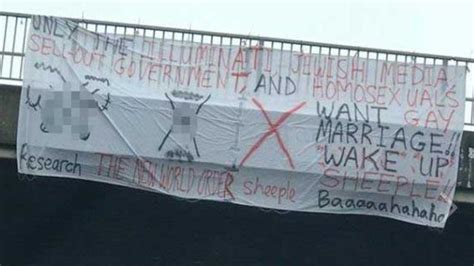 ONLY THE ILLUMINATI JEWISH MEDIA
SELL-OUT GOVERNMENT, AND HOMOSEXUALS
WANT GAY
MARRIAGE!!
"WAKE" UP"
SHEEPLE!!
Research THE NEW WORLD ORDER sheeple Baaaaahahaha